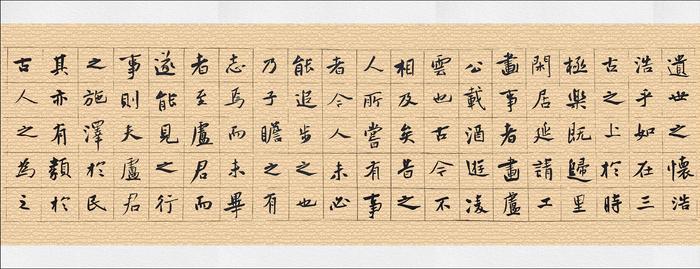 遺世之懷浩
浩乎如在三
古之上於時
極樂既歸里
閑居延請工
畫事者畫盧
公載酒遊凌
雲也古今不
相及矣昔之
人所嘗有事
者今人未必
能追步之也
乃子瞻之有
志焉而未畢
者至盧君而
遂能見之行
事則夫盧君
之施澤於民
其亦有類於
古人之為之